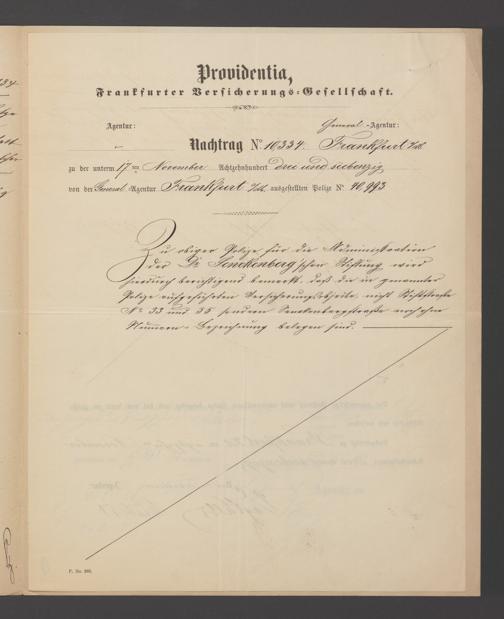 Providentia,
Frankfurter Versicherungs-Gesellschaft.
Agentur: General-Agentur:
Nachtrag No 10334. Frankfurt
zu der unterm 17ten November Achtzehnhundert drei und siebenzig
von der General-Agentur Frankfurt ausgestellten Polize No. 40,993
Zu obiger Polize für die Administration
der Dr. Senckenberg'schen Stiftung wird
hierdurch berichtigend bemerkt, daß die in genannter
Polize aufgeführten Versicherungsobjecte, nicht Stiftstraße
No 33 und 35 sondern Senckenbergstraße noch ohne
Nummern-Bezeichnung belegen sind.